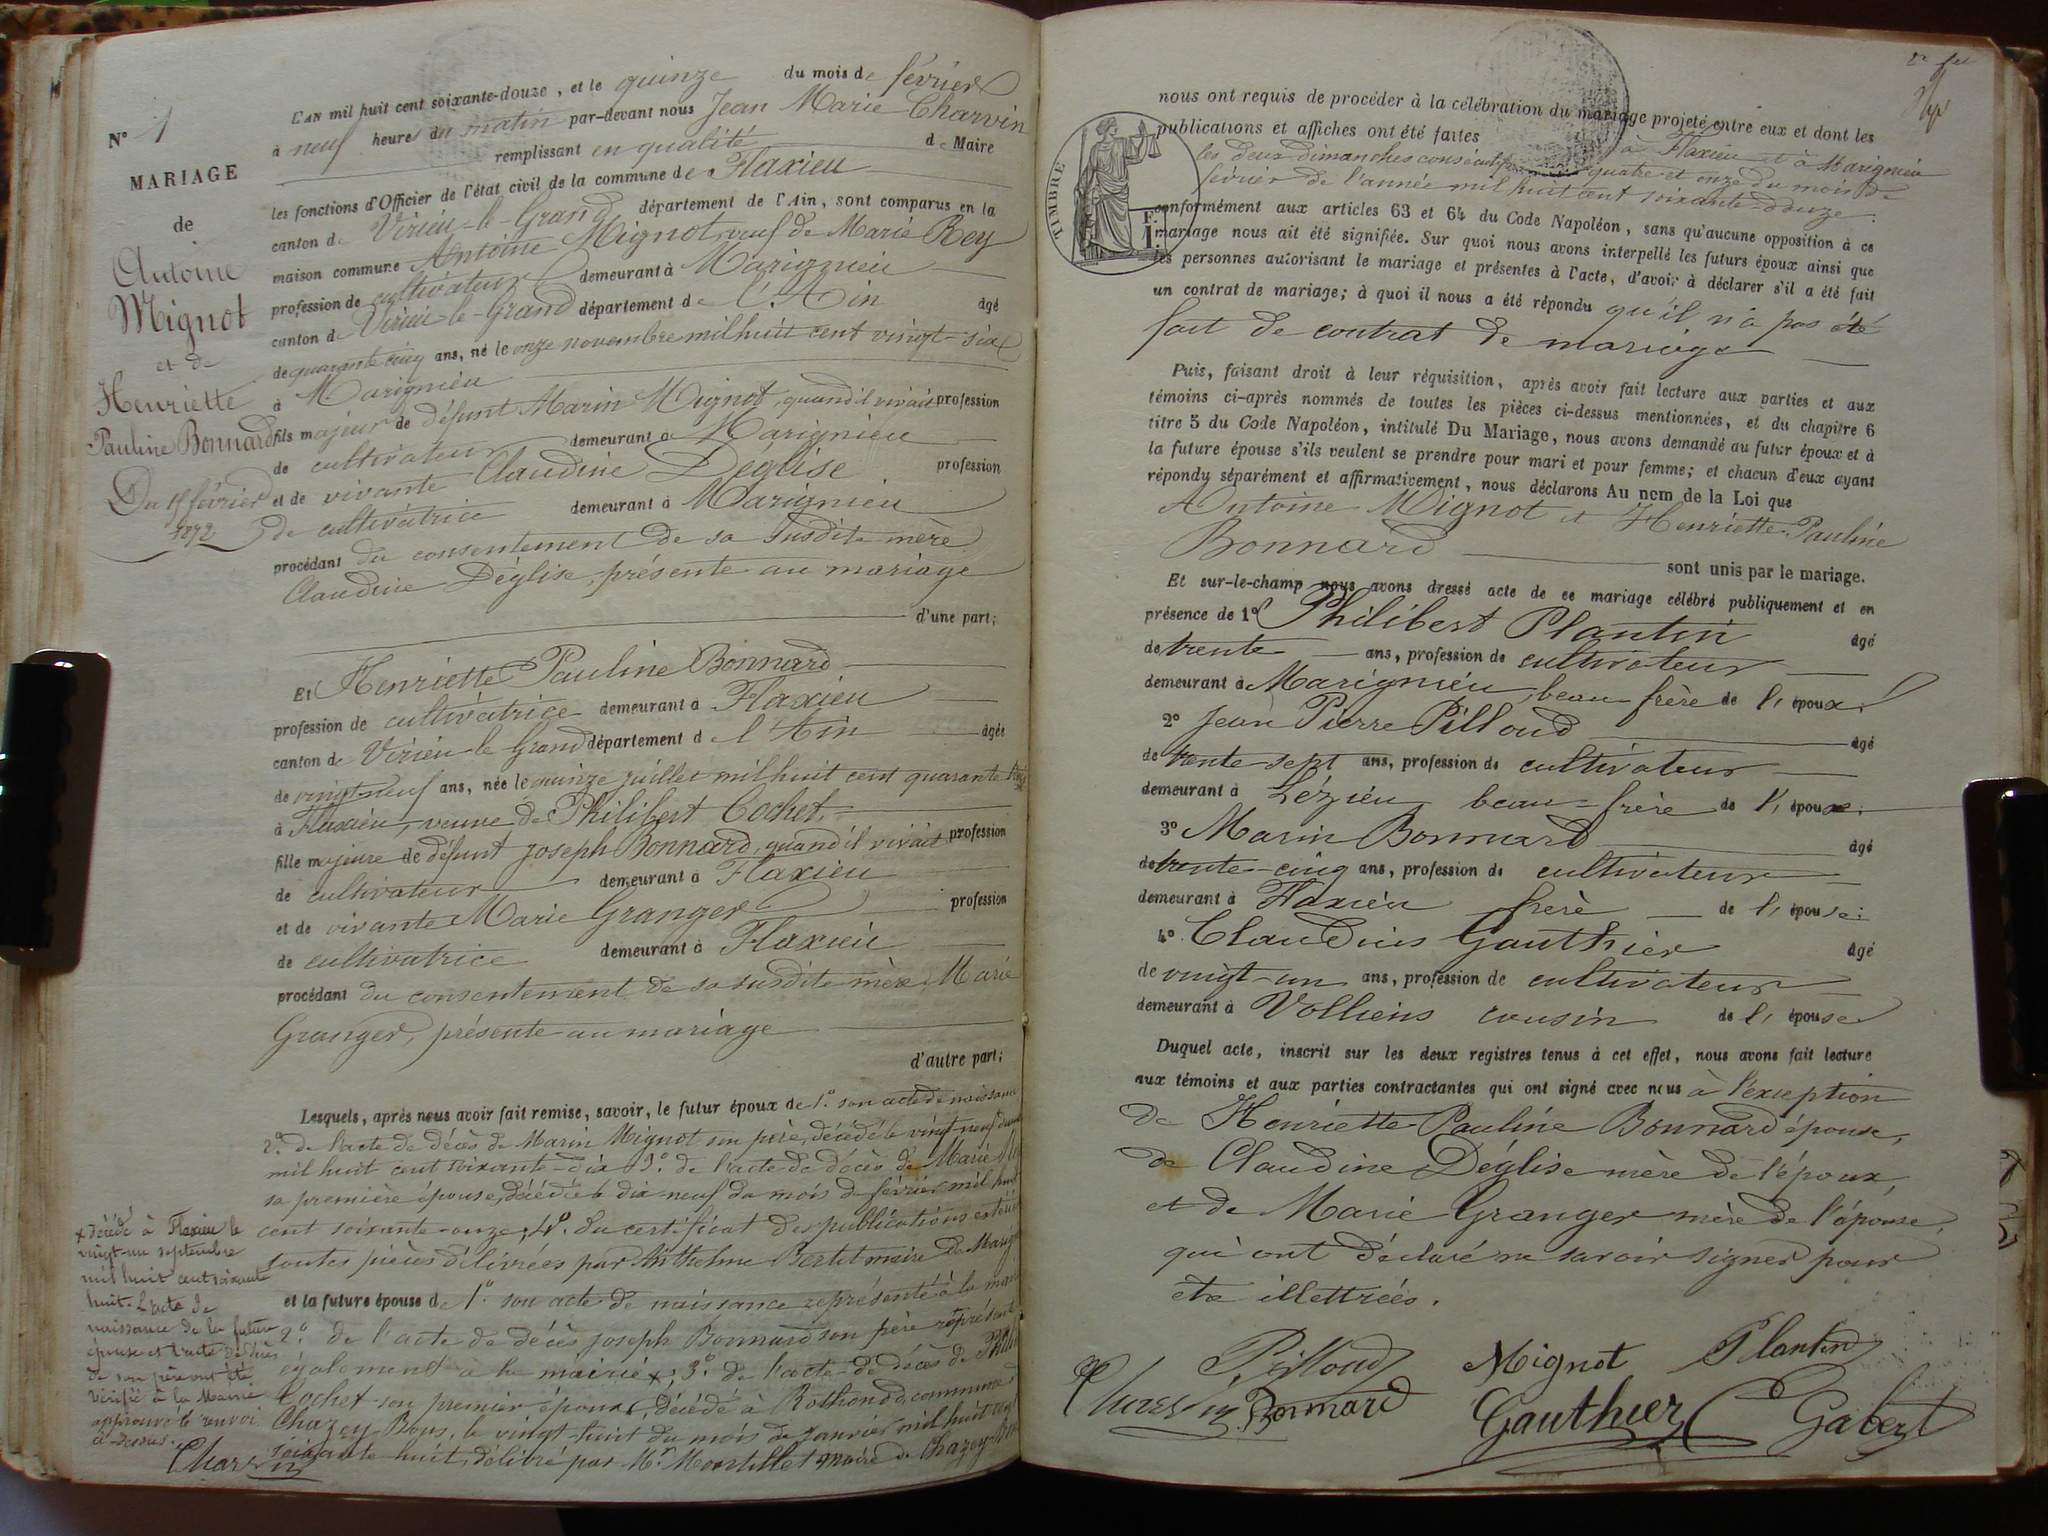 N° 1
MARIAGE
de
Antoine
Mignot
et de
Henriette
Pauline Bonnard
Du 15 février
1872
L'AN mil huit cent soixante-douze, et le quinze du mois de février
à neuf heures du matin par-devant nous Jean Marie Charvin
remplissant en qualité de Maire
les fonctions d'Officier de l'état civil de la commune de Flaxieu
canton de Virieu-le-Grand département de l'Ain, sont comparus en la
maison commune Antoine Mignot, veuf de Marie Rey
profession de cultivateur demeurant à Marignieu
canton de Virieu-le-Grand département de l'Ain âgé
de quarante cinq ans, né le onze novembre mil huit cent vingt-six
à Marignieu
fils majeur de défunt Marin Mignot, quand il vivait profession
de cultivateur demeurant à Marignieu
et de vivante Claudine Déglise profession
de cultivatrice demeurant à Marignieu
procédant du consentement de sa susdite mère
Claudine Déglise, présente au mariage
d'une part;
Et Henriette Pauline Bonnard
profession de cultivatrice demeurant à Flaxieu
canton de Virieu-le-Grand département de l'Ain âgée
de vingt neuf ans, née le quinze juillet mil huit cent quarante
à Flaxieu, veuve de Philibert Cochet,
fille majeure de défunt Joseph Bonnard, quand il vivait profession
de cultivateur demeurant à Flaxieu
et de vivante Marie Granger profession
de cultivatrice demeurant à Flaxieu
procédant du consentement de sa susdite mère, Marie
Granger, présente au mariage
d'autre part;
Lesquels, après nous avoir fait remise, savoir, le futur époux de 1° son acte de naissance
2° de l'acte de décès de Marin Mignot son père, décédé le vingt neuf
mil huit cent soixante-dix 3° de l'acte de décès de Marie
sa première épouse, décédée le dix-neuf du mois de février mil huit
cent soixante-onze; 4° du certificat des publications
toutes pièces délivrées par Anthelme Bertet maire de
et la future épouse de 1° son acte de naissance représenté à la
2° de l'acte de décès Joseph Bonnard son père
également à la mairie x; 3° de l'acte de décès de
Cochet son premier époux, décédé à Rothonod, commune
Chazey Bons, le vingt-huit du mois de janvier mil huit cent
soixante huit, délivré par Mr. Mortillet maire de Chazey
x décédé à Flaxieu le
vingt-un septembre
mil huit cent soixante
huit. L'acte de
naissance de la future
épouse et l'acte de décès
de son père ont été
vérifié à la Mairie
approuvé le renvoi
ci-dessus.
Charvin
nous ont requis de procéder à la célébration du mariage projeté entre eux et dont les
publications et affiches ont été faites à Flaxieu et à Marignieu
les deux dimanches consécutifs quatre et onze du mois de
février de l'année mil huit cent soixante-douze
TIMBRE
conformément aux articles 63 et 64 du Code Napoléon, sans qu'aucune opposition à ce
mariage nous ait été signifiée. Sur quoi nous avons interpellé les futurs époux ainsi que
les personnes autorisant le mariage et présentes à l'acte, d'avoir à déclarer s'il a été fait
un contrat de mariage; à quoi il nous a été répondu qu'il n'a pas été
fait de contrat de mariage
Puis, faisant droit à leur réquisition, après avoir fait lecture aux parties et aux
témoins ci-après nommés de toutes les pièces ci-dessus mentionnées, et du chapitre 6
titre 5 du Code Napoléon, intitulé Du Mariage, nous avons demandé au futur époux et à
la future épouse s'ils veulent se prendre pour mari et pour femme; et chacun d'eux ayant
répondu séparément et affirmativement, nous déclarons Au nom de la Loi que
Antoine Mignot et Henriette Pauline
Bonnard sont unis par le mariage.
Et sur-le-champ nous avons dressé acte de ce mariage célébré publiquement et en
présence de 1° Philibert Plantin âgé
de trente ans, profession de cultivateur
demeurant à Marignieu, beau frère de l'époux
2° Jean Pierre Pilloud âgé
de trente-sept ans, profession de cultivateur
demeurant à Lézieu, beau-frère de l'époux
3° Marin Bonnard âgé
de trente-cinq ans, profession de cultivateur
demeurant à Flaxieu frère de l'épouse
4° Claudius Gauthier âgé
de vingt-un ans, profession de cultivateur
demeurant à Volliens cousin de l'épouse
Duquel acte, inscrit sur les deux registres tenus à cet effet, nous avons fait lecture
aux témoins et aux parties contractantes qui ont signé avec nous à l'exception
de Henriette Pauline Bonnard épouse,
de Claudine Déglise mère de l'époux,
et de Marie Granger mère de l'épouse,
qui ont déclaré ne savoir signer pour
être illettrées.
Pilloud Mignot Plantin
Charvin Bonnard Gauthier Gabert